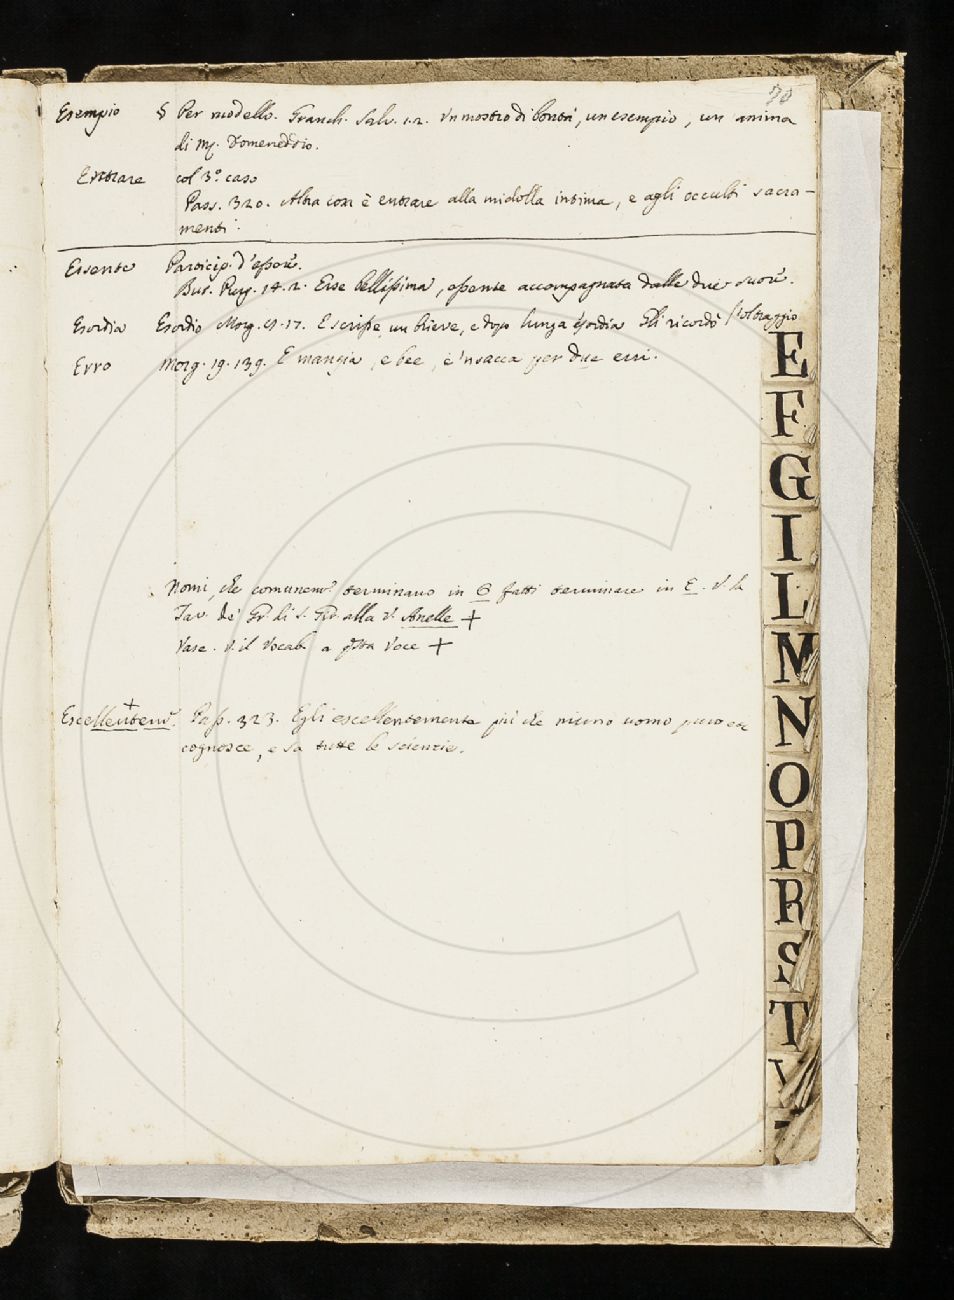 30
Esempio § Per modello. Granch. Salv. 1.2. Un mostro di bontà, un esempio, un anima
di M. Domeneddio.
Entrare col 3.º caso
Pass. 320. Altra cosa è entrare alla midolla intima, e agli occulti sacra-
menti.
Essente Particip. d'essere.
But. Purg. 14.2. Erse bellissima, essente accompagnata dalle due suore.
Esordia Esordio Morg. 17. E scrisse un brieve, e dopo lunga esordia Gli ricordò l'oltraggio
Erro Morg. 19. 139. E mangia, e bee, e 'nsacca per due erri.
Nomi, che comunem.e terminano in O fatti terminare in E. V. la
Tav. de' Gr. di S. Gir. alla V. Anelle +
Vase. V. il Vocab. a questa Voce +
Escellentem.e + Pass. 323. Egli escellentemente più che niuno uomo puro
cognosce, e sa tutte le scienzie.
E
F
G
I
L
M
N
O
P
R
S
T
V